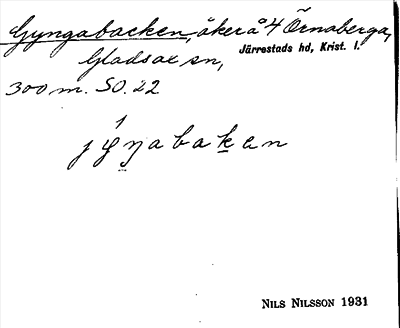 Gyngabacken, åker å 4 Örnaberga,
Gladsax sn, Järrestads hd, Krist. l.
300 m. SO. 22
jýŋabak̲en
NILS NILSSON 1931